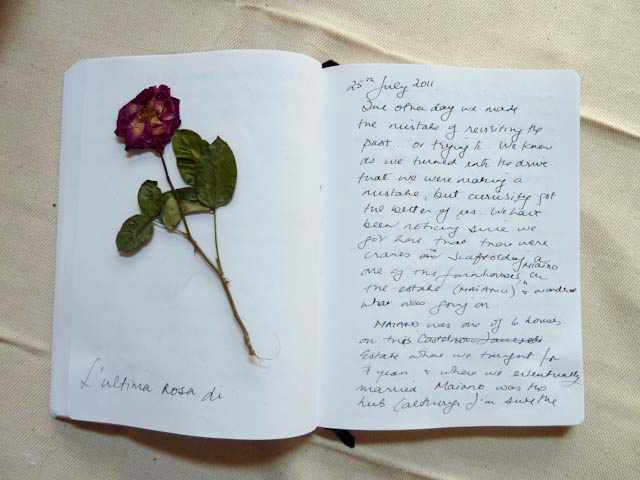 L'ultima Rosa di
25th July 2011.
The other day we made
the mistake of revisiting the
past.. or trying to. We knew
as we turned into the drive
that we were making a
mistake, but curiosity got
the better of us. We have
been noticing since we
got here that there were
cranes and scaffolding
MAIANO
one of the farmhouses on
the estate (MAIANO) & wondered
what was going on.
MAIANO was one of 6 houses
on this
Estate where we taught for
7 years & where we eventually
married. Maiano was the
hub (although I'm sure the